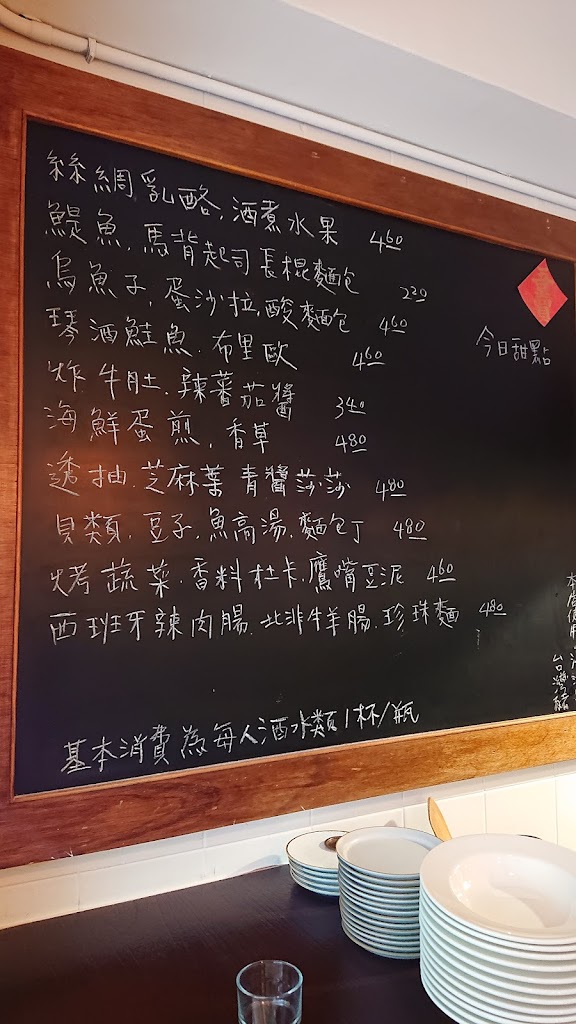 絲綢乳酪,酒煮水果 460
鯷魚,馬背起司長棍麵包 220
烏魚子,蛋沙拉,酸麵包 460
琴酒鮭魚.布里歐 460
炸牛肚.辣蕃茄醬 340
海鮮蛋煎,香草 480
透抽.芝麻葉青醬莎莎 480
貝類,豆子,魚高湯,麵包丁 480
烤蔬菜.香料杜卡,鷹嘴豆泥 460
西班牙辣肉腸.北非羊腸.珍珠麵 480
基本消費為每人酒水類1杯/瓶
今日甜點
台灣豬